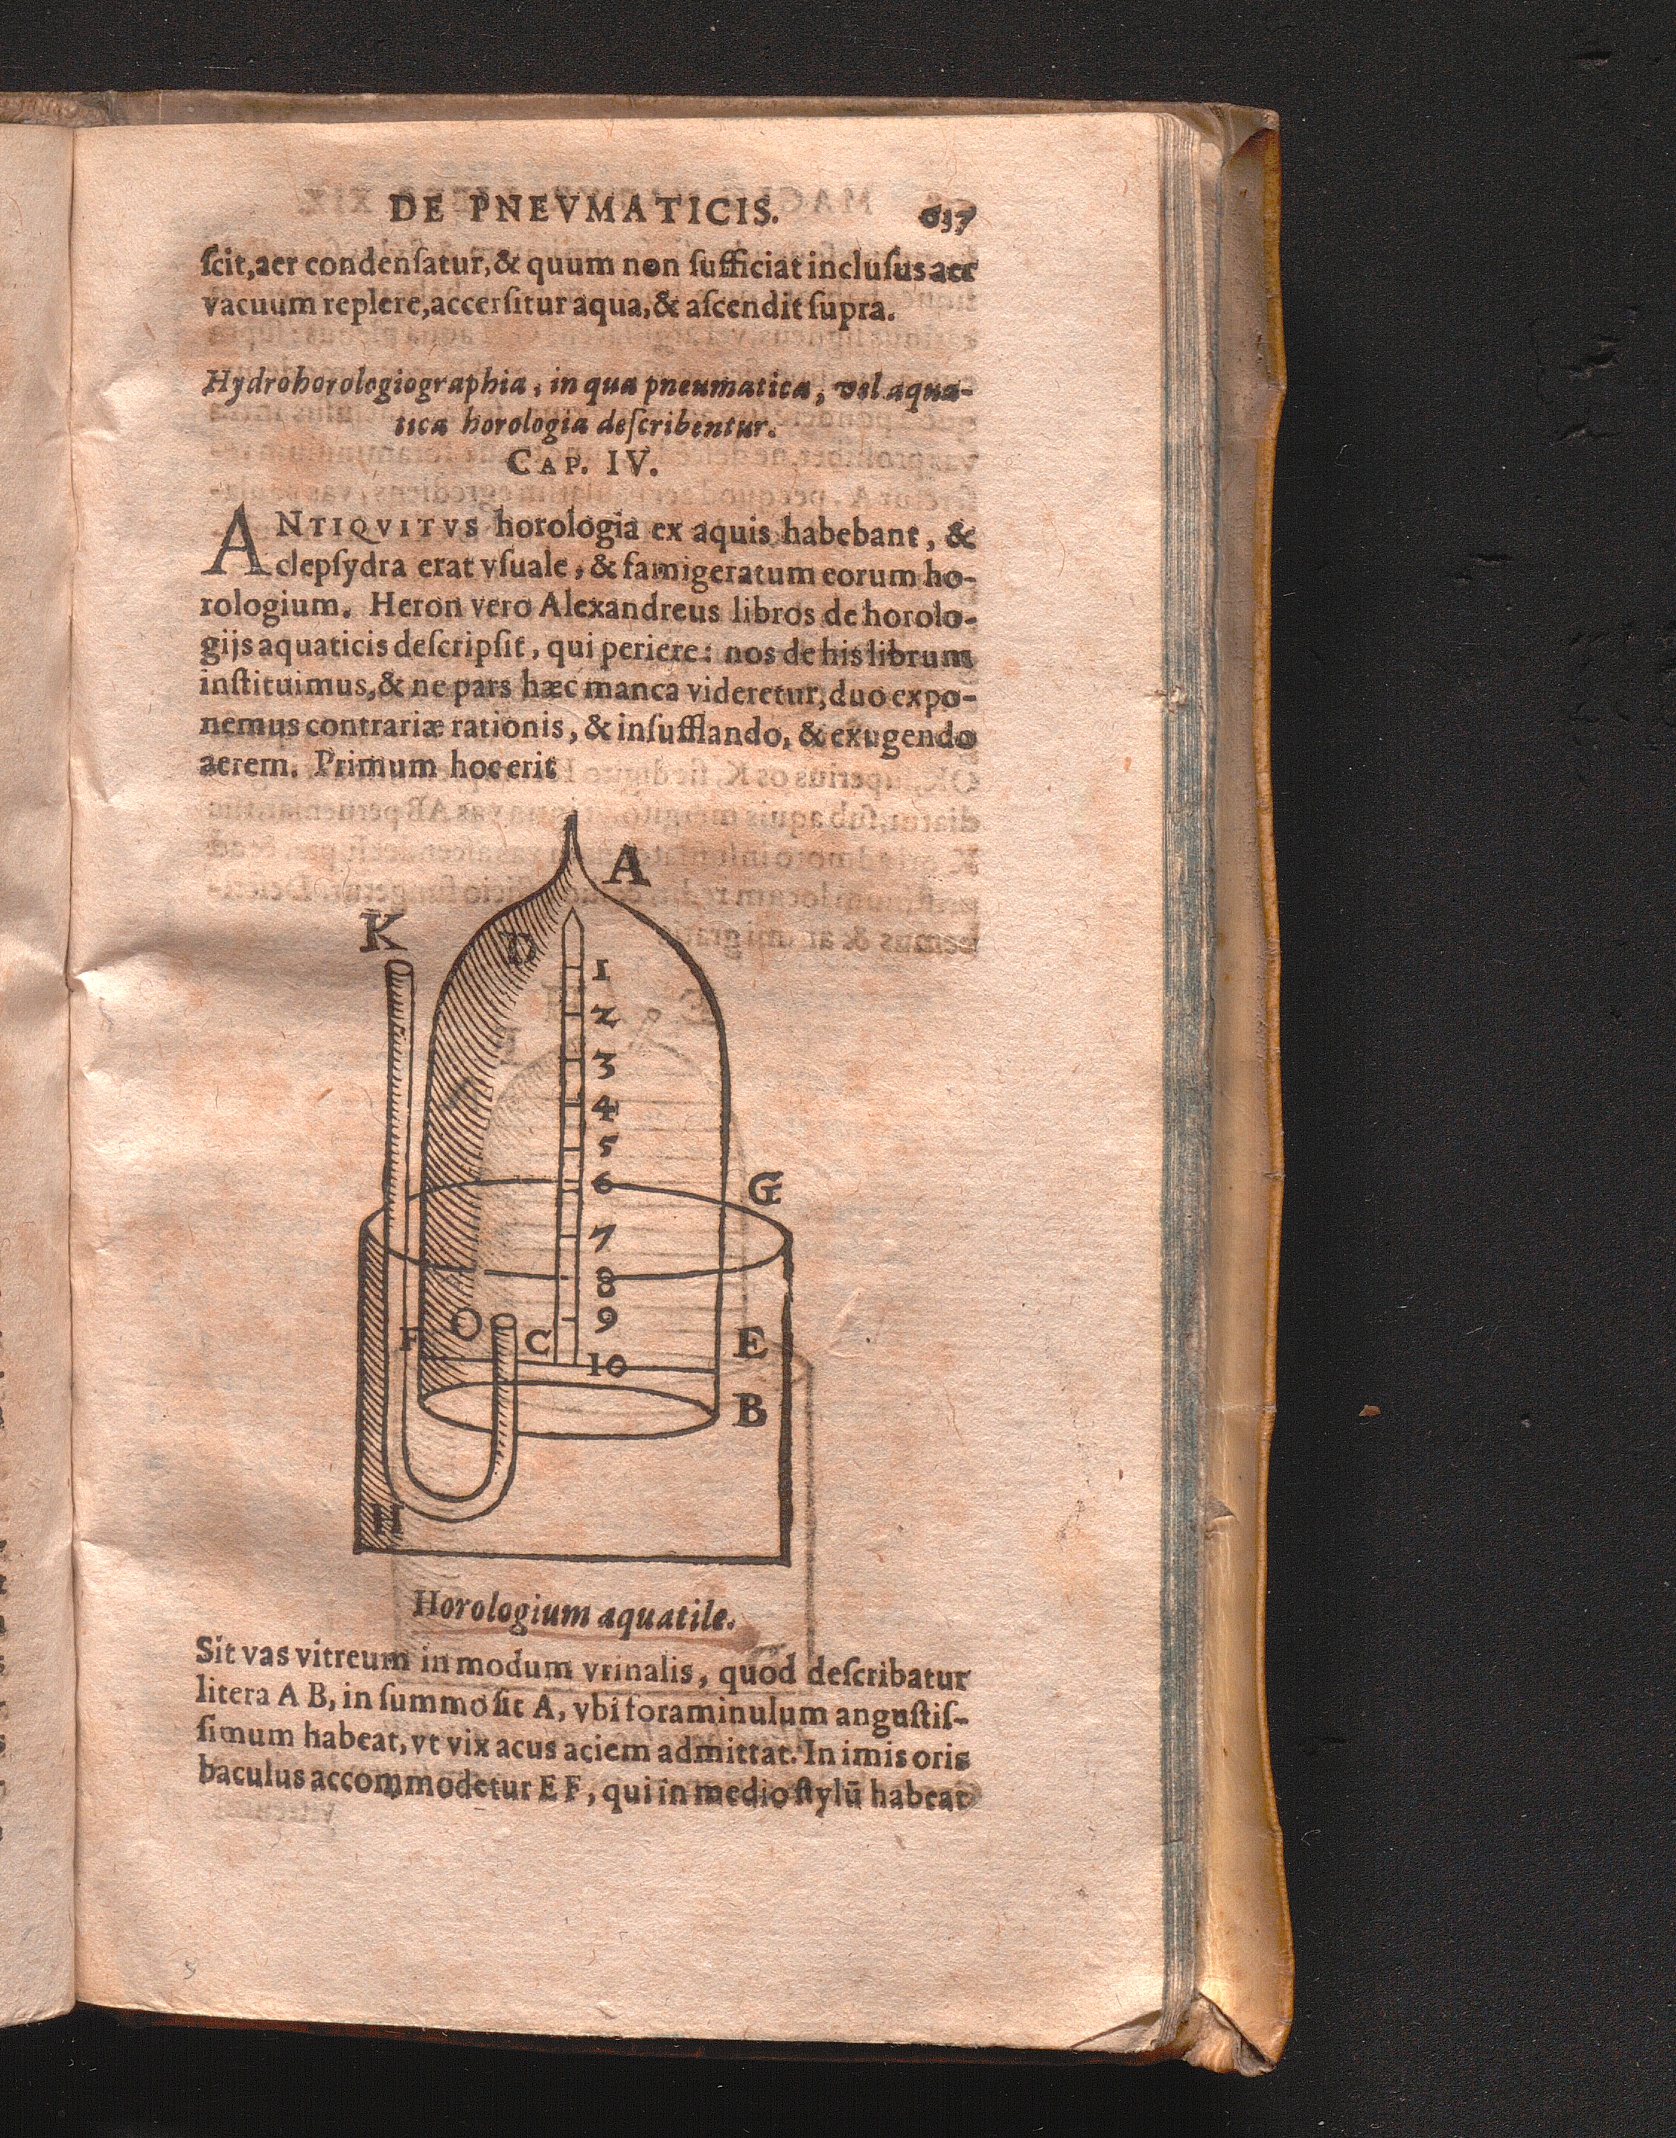 DE PNEVMATICIS. 637
ſcit, aer condenſatur, & quum non ſufficiat incluſus aer
vacuum replere, accerſitur aqua, & aſcendit ſupra.
Hydrohorologiographia, in qua pneumatica, vel aqua-
tica horologia deſcribentur.
CAP. IV.
ANTIQVITVS horologia ex aquis habebant, &
clepſydra erat vſuale, & famigeratum eorum ho-
rologium. Heron vero Alexandreus libros de horolo-
gijs aquaticis deſcripſit, qui periere: nos de his librum
inſtituimus, & ne pars hæc manca videretur, duo expo-
nemus contrariæ rationis, & inſufflando, & exugendo
aerem. Primum hoc erit
A
K
D
1
2
3
4
5
6
G
7
8
9
O
F
C
E
10
B
H
Horologium aquatile.
Sit vas vitreum in modum vrinalis, quod deſcribatur
litera A B, in ſummo ſit A, vbi foraminulum anguſtiſ-
ſimum habeat, vt vix acus aciem admittat. In imis oris
baculus accommodetur E F, qui in medio ſtylū habeat